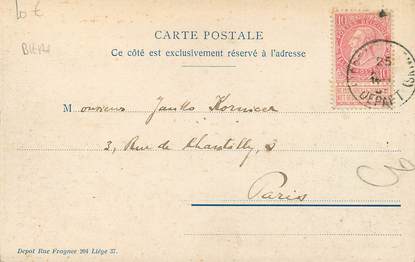 10 €
CARTE POSTALE
Ce côté est exclusivement réservé à l'adresse
10 10
25
DEPART
Monsieur Janko
3, Rue de Chantilly, 3
Paris
Depot Rue Fragnee 204 Liége 37.